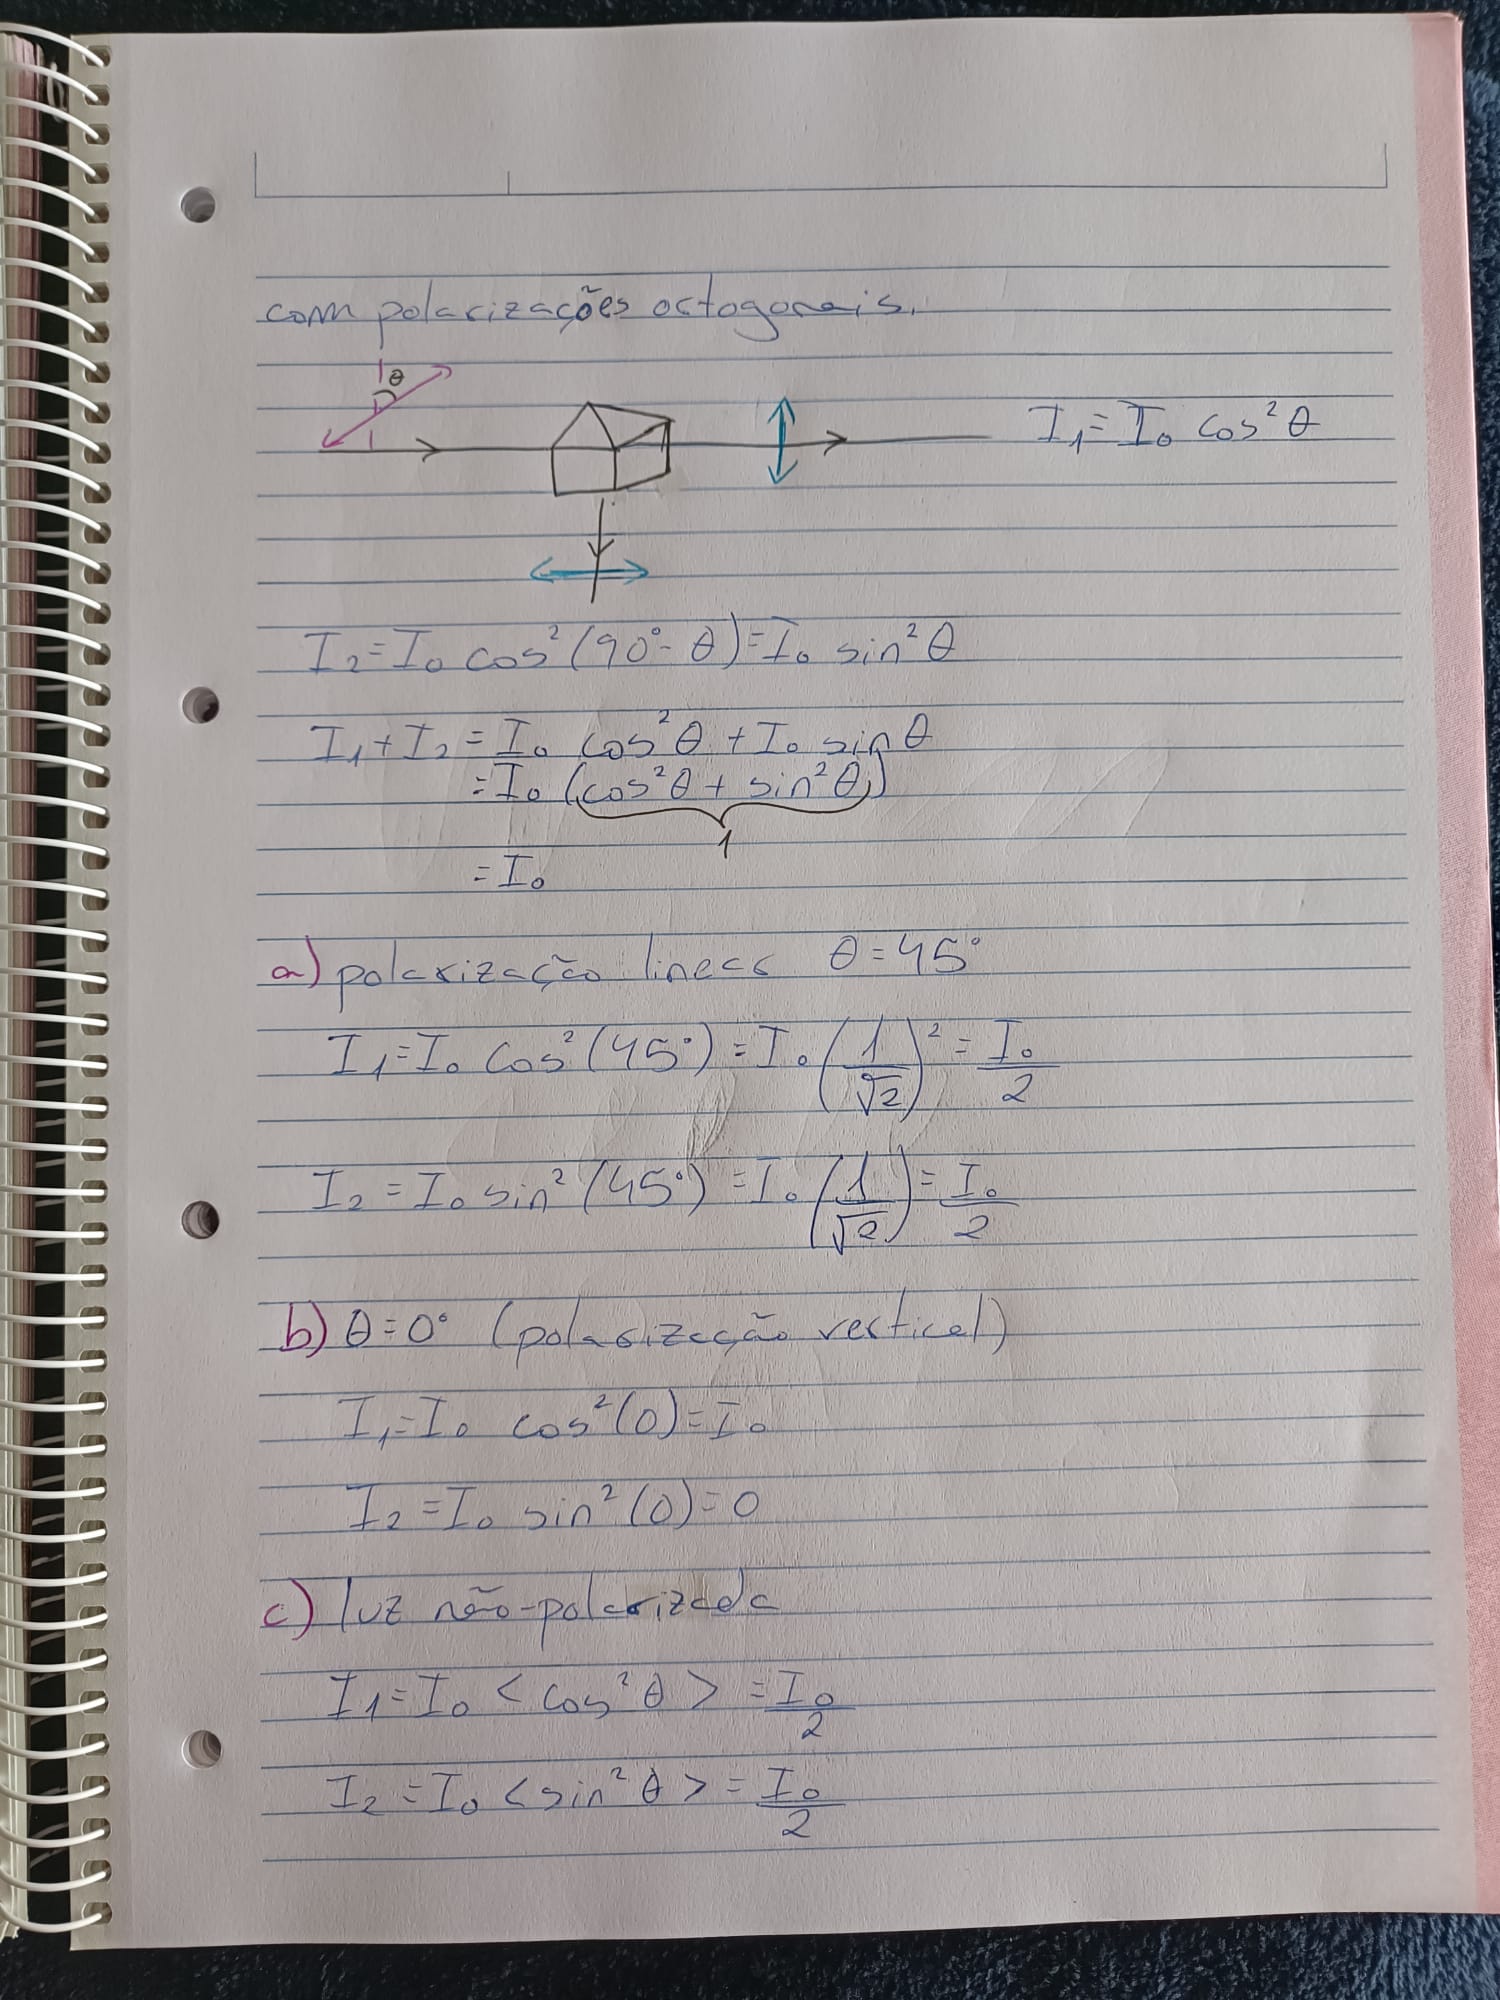 com polarizações ortogonais.
θ
I₁ = I₀ cos²θ
I₂ = I₀ cos²(90° - θ) = I₀ sin²θ
I₁ + I₂ = I₀ cos²θ + I₀ sin θ
= I₀ (cos²θ + sin²θ)
1
= I₀
a) polarização linear θ = 45°
I₁ = I₀ cos²(45°) = I₀ (1/√2)² = I₀/2
I₂ = I₀ sin²(45°) = I₀ (1/√2) = I₀/2
b) θ = 0° (polarização vertical)
I₁ = I₀ cos²(0) = I₀
I₂ = I₀ sin²(0) = 0
c) luz não-polarizada
I₁ = I₀ < cos²θ > = I₀/2
I₂ = I₀ < sin²θ > = I₀/2